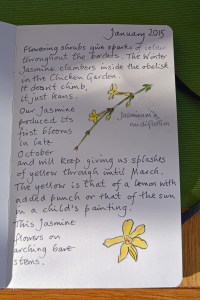 January 2015
Flowering shrubs give sparks of colour
throughout the borders. The Winter
Jasmine clambers inside the obelisk
in the Chicken Garden.
It doesn't climb,
it just leans.
Our Jasmine
produced its
first blooms
in late
October
Jasminum
nudiflorum
and will keep giving us splashes
of yellow through until March.
The yellow is that of a lemon with
added punch or that of the sun
in a child's painting.
This Jasmine
flowers on
arching bare
stems.